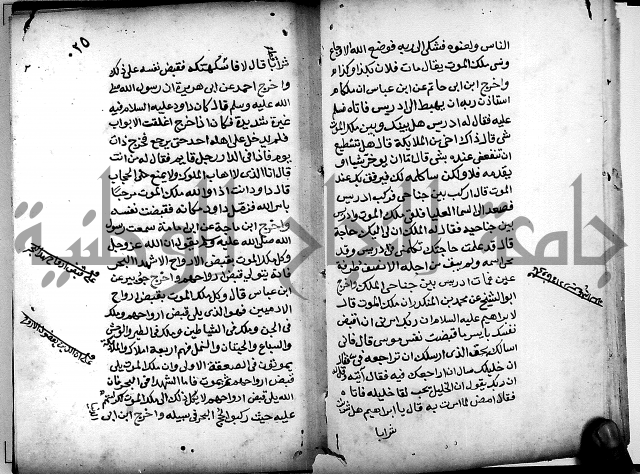 الناس ولعنوه فشكى الى ربه فوضع الله الاوجاع
ونسي ملك الموت يقال مات فلان بكذا وكذا
واخرج ابن ابي حاتم عن ابن عباس ان ملكا
استاذن ربه ان يهبط الى ادريس فاتاه فسلم
عليه فقال له ادريس هل بينك وبين ملك الموت
شي قال ذاك اخي من الملايكة قال هل تستطيع
ان تنفعني عنده بشي قال اما ان يوخر شيا او
يقدمه فلا ولكن ساكلمه لك فيرفق بك عند
الموت قال اركب بين جناحي فركب ادريس
فصعد الى السما العليا فلقي ملك الموت وادريس
بين جناحيه فقال له الملك ان لي اليك حاجة
قال قد علمت حاجتك تكلمني في ادريس وقد
محي اسمه ولم يبق من اجله الا نصف طرفة
عين فمات ادريس بين جناحي الملك واخرج
ابو الشيخ عن محمد بن المنكدر ان ملك الموت قال
لابراهيم عليه السلام ان ربك امرني ان اقبض
نفسك بايسر ما قبضت نفس مومن قال فاني
اسالك بحق الذي ارسلك ان تراجعه في فقال
ان خليلك سال ان اراجعك فيه فقال ايته وقل له
ان ربك يقول ان الخليل يحب لقا خليله فاتاه
فقال امض لما امرت به قال يا ابراهيم هل شربت
شرابا
٠٢٥
٢
شرابا قال لا فاستنكهه فقبض نفسه على ذلك
واخرج احمد عن ابي هريرة ان رسول الله صلى
الله عليه وسلم قال كان داود عليه السلام فيه
غيرة شديدة فكان اذا خرج اغلقت الابواب
فلم يدخل على اهله احد حتى يرجع فخرج ذات
يوم فاذا في الدار رجل قايم فقال له من انت
قال انا الذي لا اهاب الملوك ولا يمنع مني الحجاب
قال داود انت اذا والله ملك الموت مرحبا
بامر الله فزمل داود مكانه فقبضت نفسه
واخرج ابن ماجة عن ابي امامة سمعت رسول
الله صلى الله عليه وسلم يقول ان الله عز وجل
وكل ملك الموت بقبض الارواح الا شهدا البحر
فانه يتولى قبض ارواحهم واخرج جويبر عن
ابن عباس قال وكل ملك الموت بقبض ارواح
الادميين فهو الذي يلي قبض ارواحهم وملك
في الجن وملك في الشياطين وملك في الطير والوحش
والسباع والحيتان والنمل فهم اربعة املاك والملايكة
يموتون في الصعقة الاولى وان ملك الموت يلي
قبض ارواحهم ثم يموت فاما الشهدا في البحر فان
الله يلي قبض ارواحهم لا يكل ذلك الى ملك الموت لكرامتهم
عليه حيث ركبوا لجج البحر في سبيله واخرج ابن ابي
جامعة النجاح الوطنية